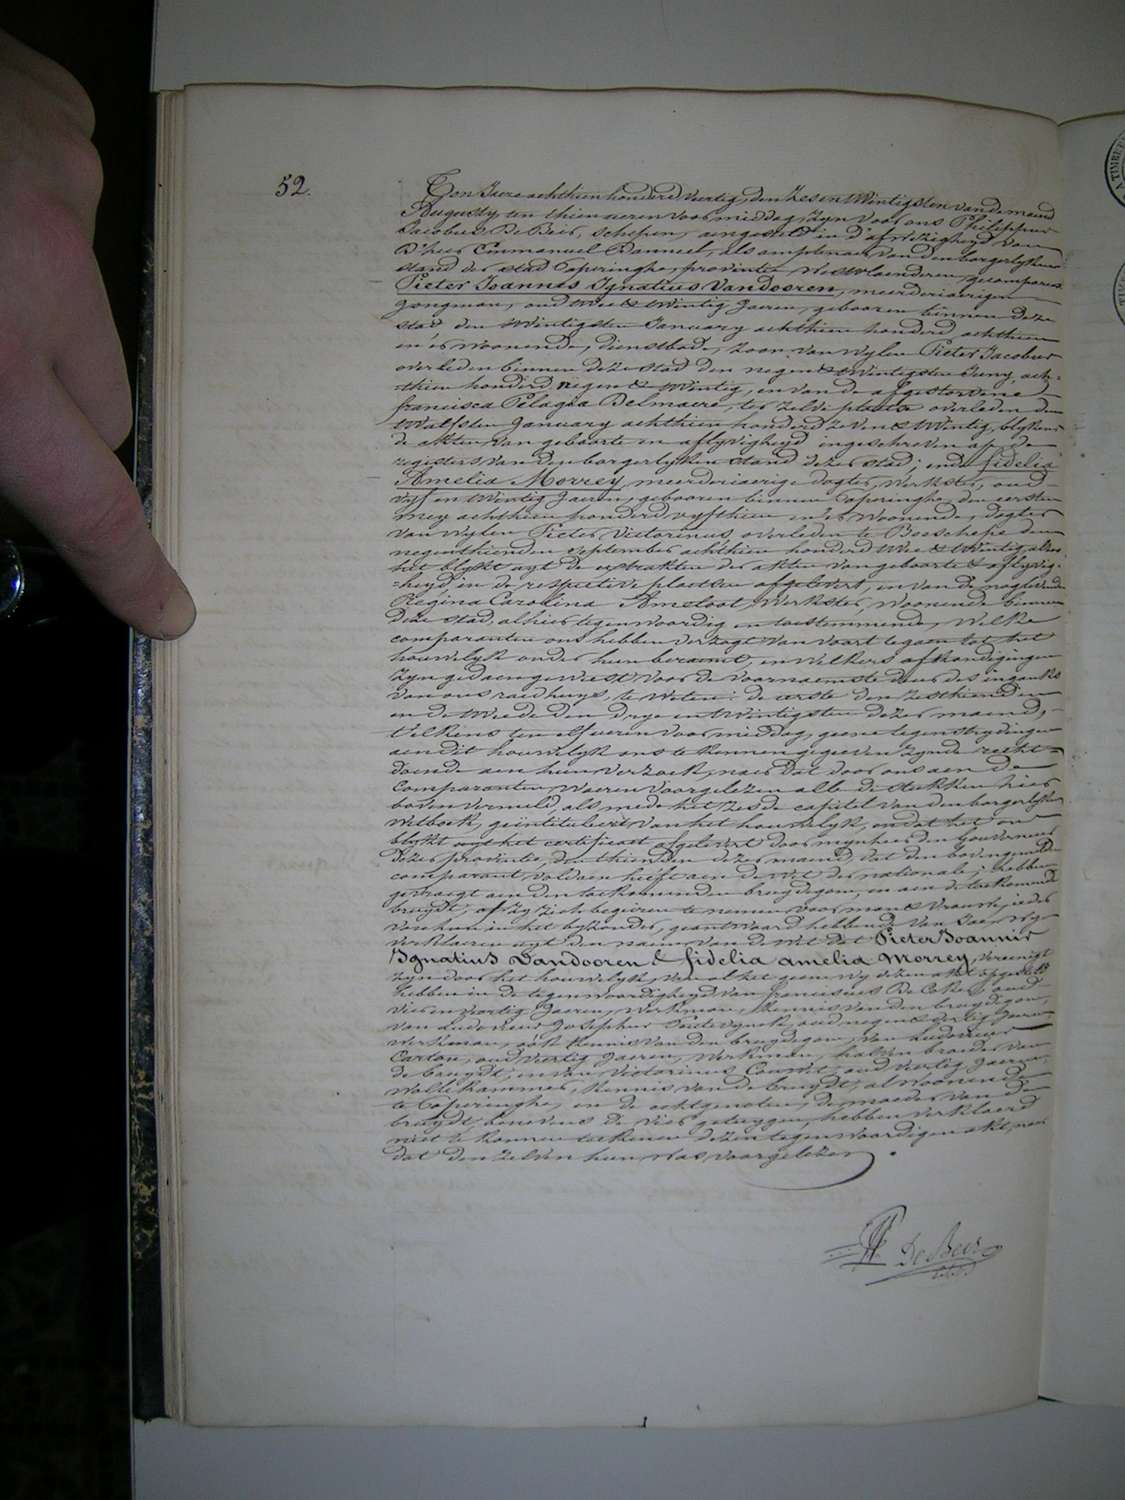 52.
Ton Jaere achthien honderd veertig, den zes en twintigsten van de maend
Augusty, ten thien ueren voormiddag, zyn voor ons Philippus
Jacobus De Beir, schepen, aengesteld in d'afwezigheyd van
D'heer Emmanuel Bannuel, als amptenaer van den borgerlyken
stand der stad Poperinghe, provintie Westvlaenderen, gecompareert
Pieter Joannes Ignatius Vandooren, meerderiaerigen
Jongman, oud twee & twintig Jaeren, gebooren binnen deze
stad den twintigsten January achthien honderd achthien
en er woonende, dienstbode, zoon van wylen Pieter Jacobus
overleden binnen deze stad den negen & twintigsten Juny, ach-
thien honderd negen & twintig, en van de afgestorvene
francisca Pelagia Delmaere, ter zelve plaetse overleden den
twalfsten January achthien honderd zeven & twintig, blykens
de akten van geboorte en aflyvigheyd ingeschreven op de
registers van den borgerlyken stand dezer stad; ende fidelia
Amelia Morrey, meerderiaerige dogter, werkster, oud
vyf en twintig Jaeren, gebooren binnen Poperinghe, den eersten
mey achthien honderd vyfthien en er woonende, dogter
van wylen Pieter Victorinus overleden te Boeschepe den
negenthienden september achthien honderd twee & twintig, alzoo
het blykt uyt de extrakten der akten van geboorte & aflyvig-
heyd in de respective plaetsen afgelevert, en van de nog levende
Regina Carolina Ameloot, werkster, woonende binnen
deze stad, alhier tegenwoordig en toestemmende, Welke
comparanten ons hebben verzogt van voort te gaen tot het
houwelyk onder hun beraemt, en welkers afkondigingen
zyn gedaen geweest voor de voornaemste deur des inganks
van ons raedhuys, te weten: de eerste den zesthienden
en de tweede den drye en twintigsten dezer maend,
telkens ten elf ueren voormiddag, geene tegenstrydingen
aen dit houwelyk ons te kennen gegeeven zynde recht-
doende aen hun verzoek, naer dat door ons aen de
comparanten waeren voorgelezen alle de stukken hier
boven vermeld, als mede het zesde capitel van den borgerlyken
wetboek, geintituleert van het houwelyk, en dat het ons
blykt uyt het certificaet afgelevert door mynheer den Gouverneur
dezer provintie, den thienden dezer maend, dat den bovengemelden
comparant, voldaen heeft aen de wet der nationale; hebben
gevraegt aen den toekomenden bruydegom, en aen de toekomende
bruydt, of zy zich begeiren te nemen voor man & vrouw, ieder
van hun in het byzonder, geantwoord hebbende van Jae, wy
verklaeren uyt den naem van de wet dat Pieter Joannis
Ignatius Vandooren & fidelia amelia Morrey, vereenigt
zyn door het houwelyk, van al het geene wy dezen akt opgesteld
hebben in de tegenwoordigheyd van franciscus De Coker, oud
vier en veertig Jaeren, werkman, kennis van den bruydegom,
van Ludovicus Josephus oud negen & dertig Jaeren
werkman, ook kennis van den bruydegom, van Ludovicus
Carton, oud veertig Jaeren, werkman, halven broeder van
de bruydt, en van Victorinus oud veertig Jaeren,
wollekammer, kennis van de bruydt, al woonende
te Poperinghe, en de echtgenoten, de moeder van de
bruydt, benevens de vier getuygen, hebben verklaerd
niet te konnen teekenen dezen tegenwoordigen akt, naer
dat den zelven hun was voorgelezen.
PJ De Beir